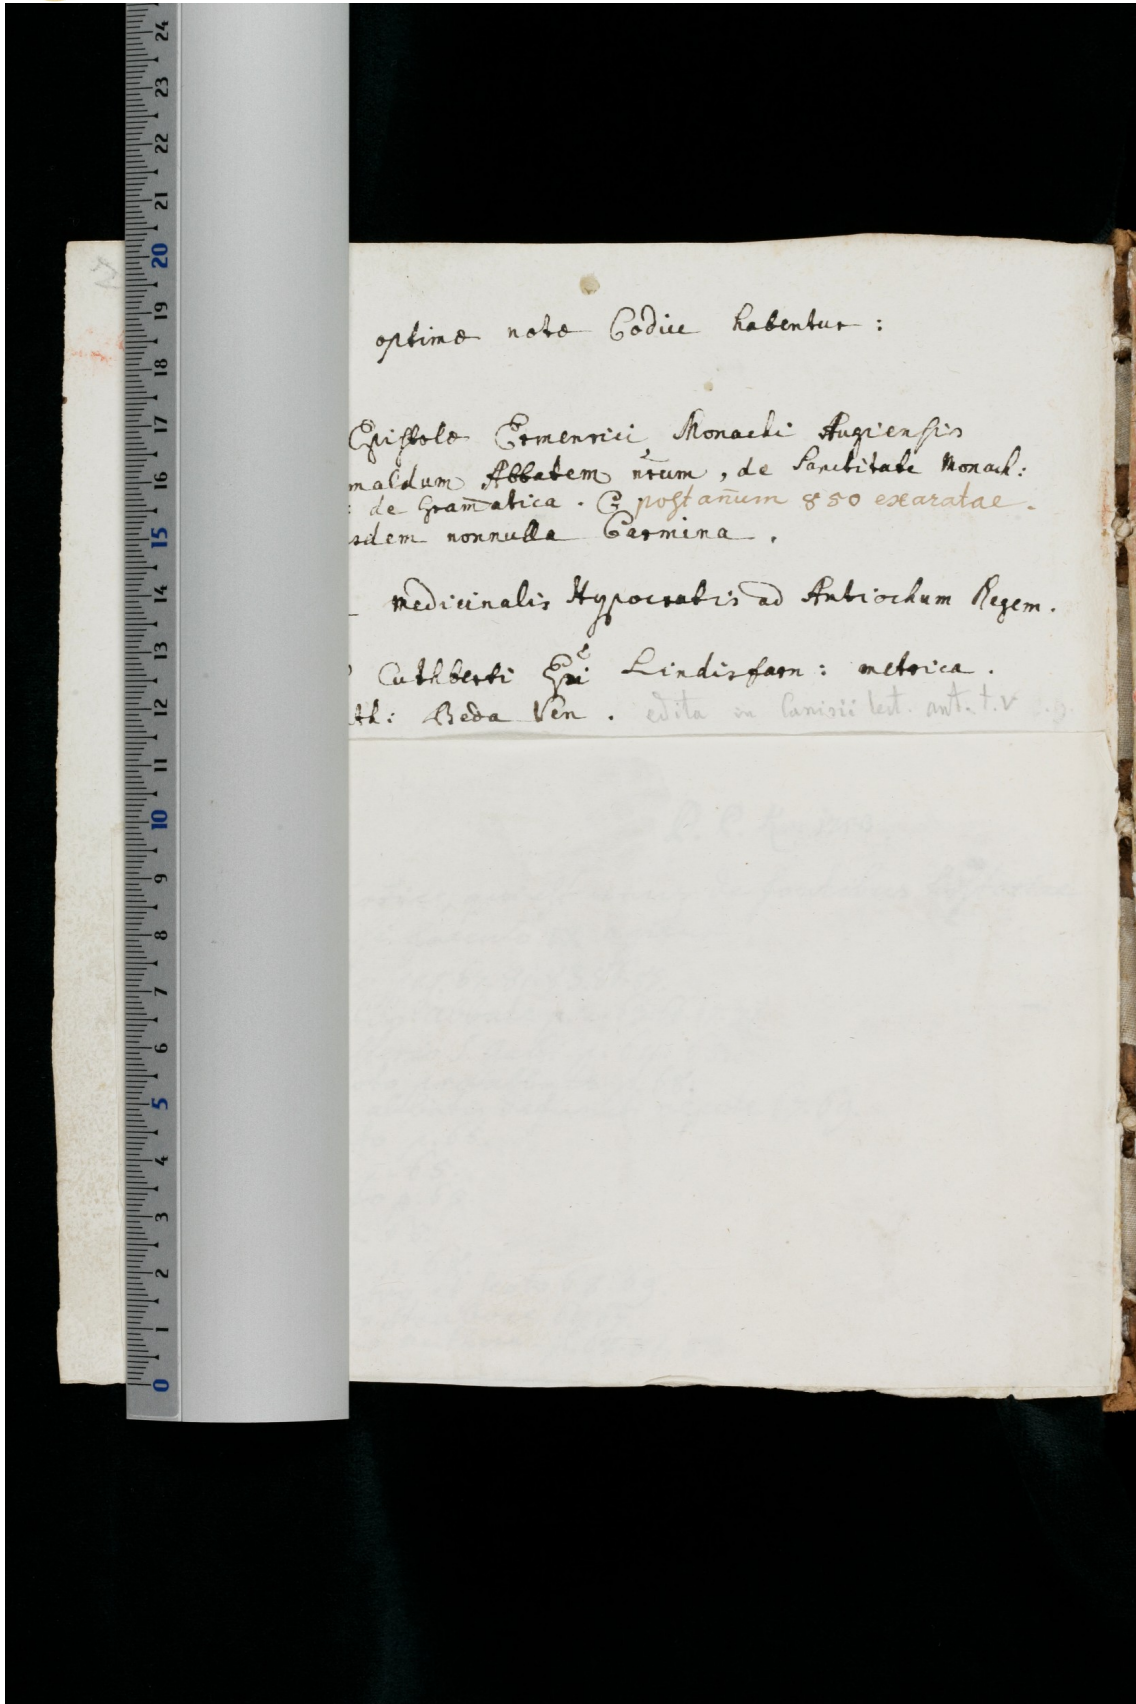 optimæ notæ Codice habentur :
Epistolæ Ermenrici Monachi Augiensis
maldum Abbatem nr̃um , de Sanctitate Monach:
: de Gram̄atica . post an̄um 850 exaratae .
sdem nonnulla Carmina .
medicinalis Hypocratis ad Antiochum Regem .
Cuthberti Epi Lindisfarn : metrica .
th: Beda Ven . edita in Canisii lect. ant. t. V